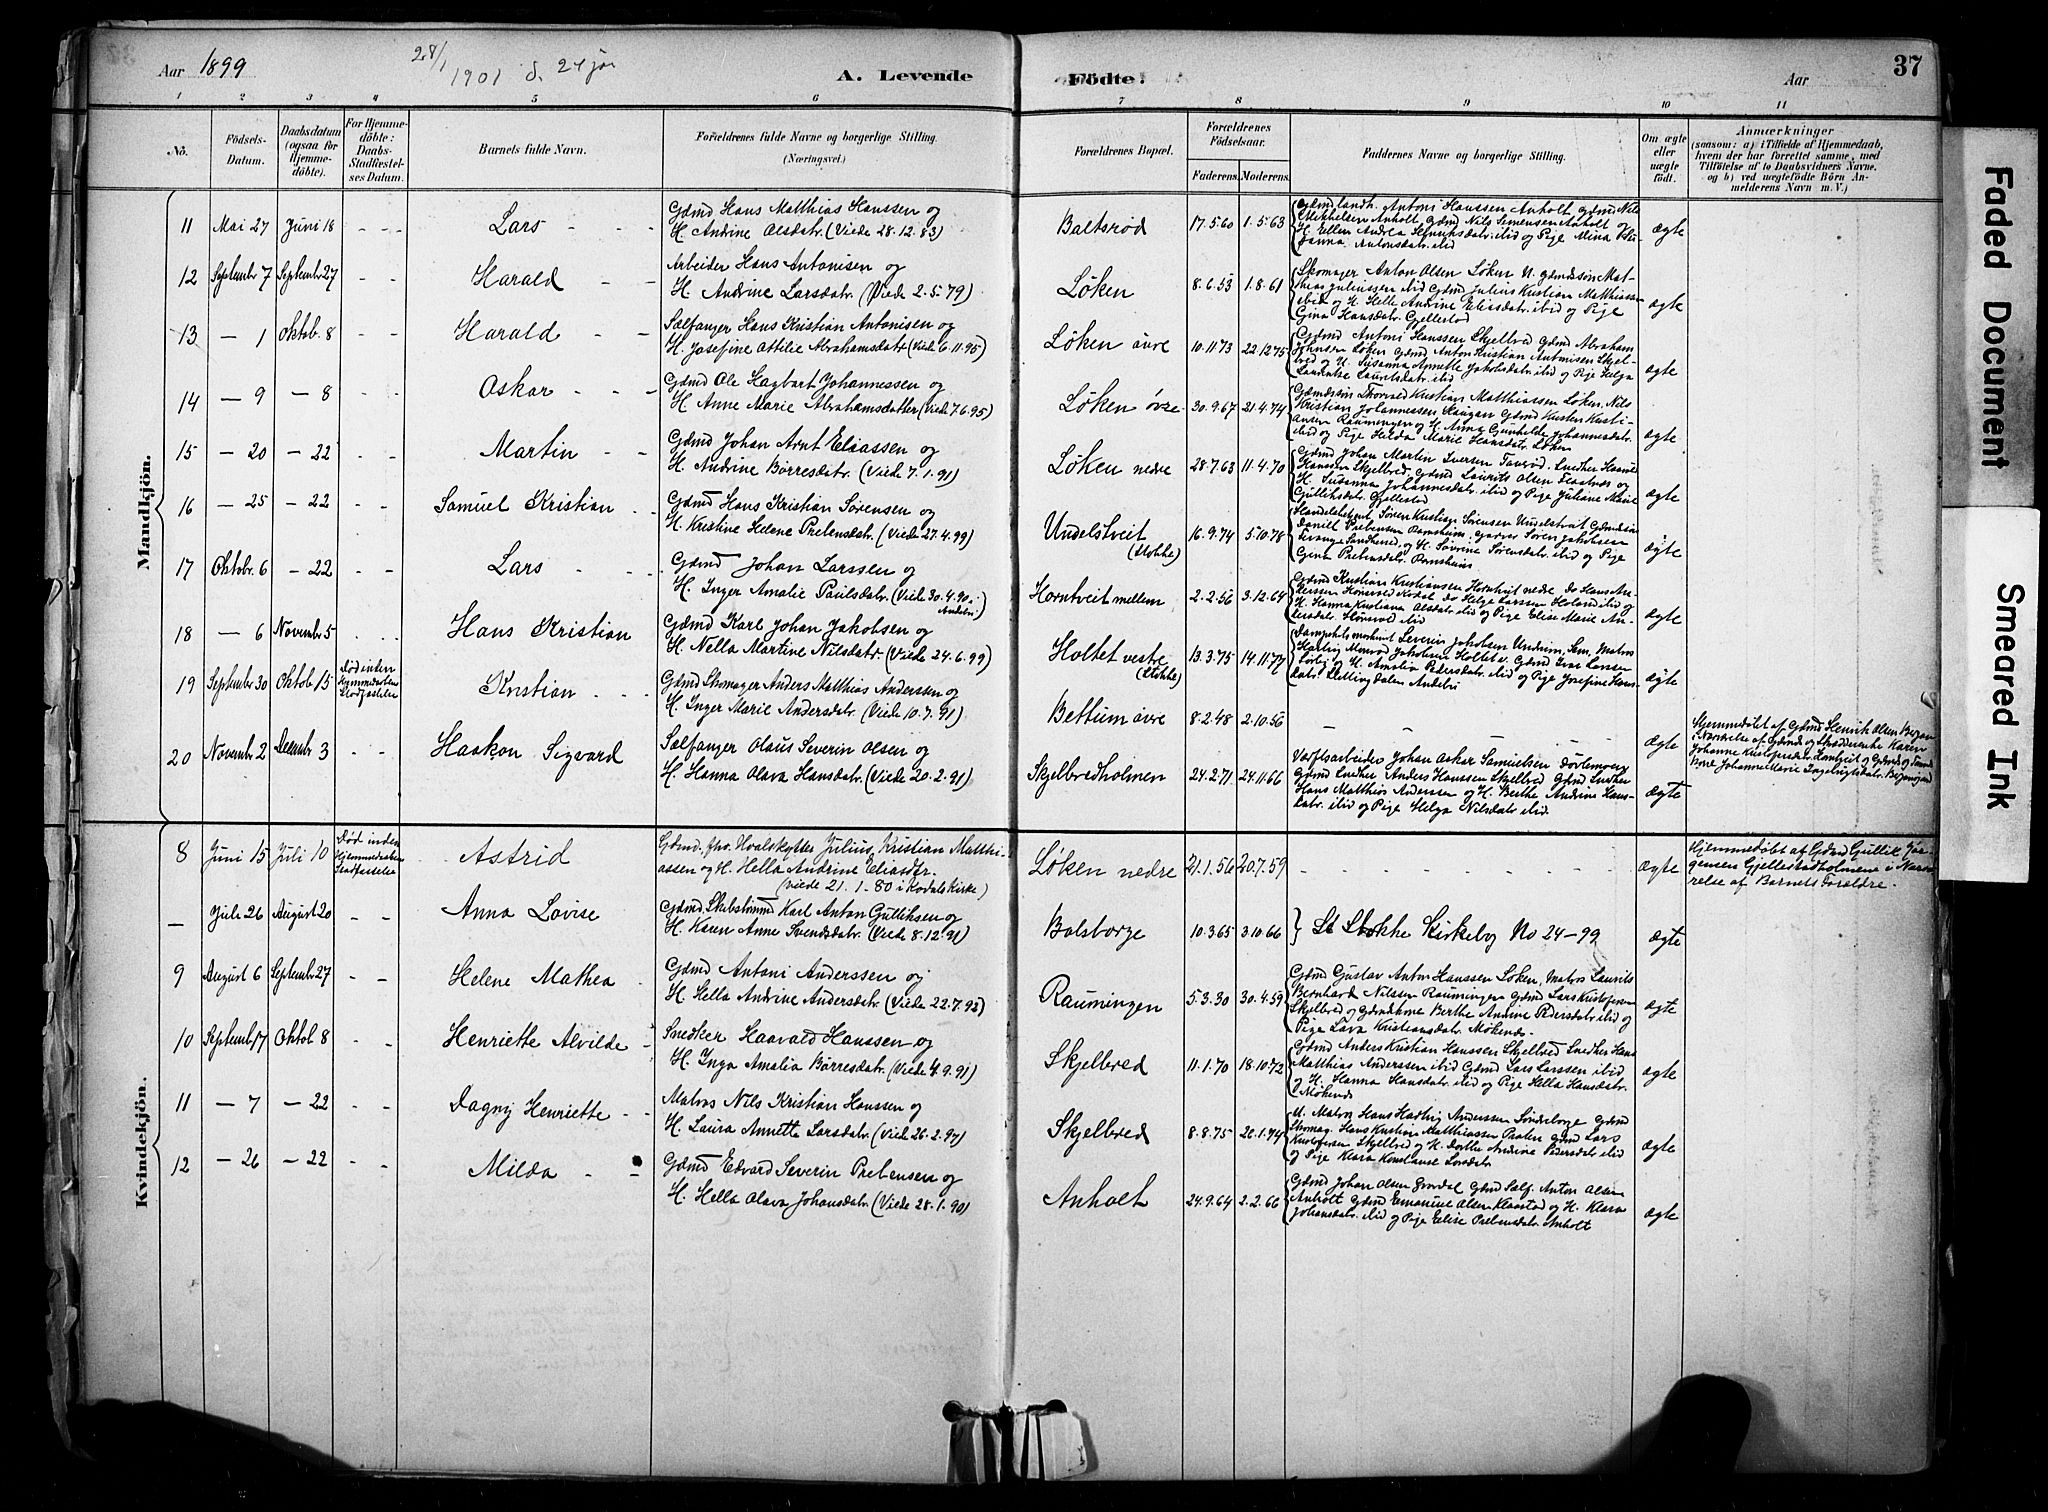 Aar 1899
28/1 1901 d. 24 jor
A. Levende
Födte.
Aar
37
1 2 3 4 5 6 7 8 9 10 11
No.
Födsels-Datum.
Daabsdatum (ogsaa for Hjemme-döbte).
For Hjemme-döbte: Daabs-Stadfæstel-ses Datum.
Barnets fulde Navn.
Forældrenes fulde Navne og borgerlige Stilling.
(Næringsvei.)
Forældrenes Bopæl.
Forældrenes Födselsaar.
Faderens. Moderens.
Faddernes Navne og borgerlige Stilling.
Om ægte eller uægte födt.
Anmærkninger
(saasom: a) i Tilfælde af Hjemmedaab,
hvem der har forrettet samme, med
Tilföielse af to Daabsvidners Navne.
og b) ved uægtefödte Börn An-
melderens Navn m. V.)
Mandkjön.
11 Mai 27 Juni 18 - - - Lars - - - Gdmd Hans Matthias Hanssen og
H. Andrine Olsdatr. (Viede 28.12.83) Baltsrød 17.5.60 1.5.63 ægte
Gdmd landh. Antoni Hanssen Anholt Gdmd Nils
Mikkelsen Anholt, Gdmd Nils Simensen Anholt og
H. Ellen Andrea Henriksdatr. ibid og Pige Mina
Antonsdatr. ibid
12 Septembr 7 Septembr 27 - - Harald - - Arbeider Hans Antonisen og
H. Andrine Larsdatr. (Viede 2.5.79) Løken 8.6.53 1.8.61 ægte
Skomager Anton Olsen Løken N. Gdmdssøn Mat-
thias Juliussen ibid Gdmd Julius Kristian Matthiassen
ibid og H. Helle Andrine Eliasdatr. ibid og Pige
Gina Hansdatr. Gjellestad
13 - 1 Oktob. 8 - - Harald - - Sælfanger Hans Kristian Antonisen og
H. Josefine Attilie Abrahamsdatr (Viede 6.11.95) Løken øvre 10.11.73 22.12.75 ægte
Gdmd Antoni Hanssen Skjelbred Gdmd Abraham
Johnsen Løken Gdmd Anton Kristian Antonisen Skjel-
bred og H. Susanna Annette Jakobsdatr. ibid og Pige Helga
Laurentze Lauritsdatr. ibid
14 - 9 - 8 - - Oskar - - - Gdmd Ole Hagbart Johannessen og
H. Anne Marie Abrahamsdatter (Viede 7.6.95) Løken øvre 30.9.67 21.4.74 ægte
Gdmdssøn Thorvald Kristian Matthiassen Løken, Nils
Kristian Johannessen Haugan Gdmd Kristen Kristi-
ansen Raumingen og H. Anna Gunhilde Johannesdatr.
ibid og Pige Hilda Marie Hansdatr. Løken
15 - 20 - 22 - - Martin - - Gdmd Johan Arnt Eliassen og
H. Andrine Börresdatr. (Viede 7.1.91) Løken nedre 28.7.63 11.4.70 ægte
Gdmd Johan Martin Iversen Snedker Haavald
Hanssen Skjelbred, Gdmd Laurits Olsen og
H. Susanna Johannesdatr. ibid og Pige Juliane Marie
Gulliksdatr. Gjellestad
16 - 25 - 22 - - Samuel Kristian - - Gdmd Hans Kristian Sørensen og
H. Kristine Helene Prebensdatr. (Viede 27.4.99) Undelstveit
(Stokke) 16.9.74 5.10.78 ægte
Handelsbetjent Søren Kristian Sørensen Undelstveit Gdmdssøn
Daniel Prebensen Ramsheim, Garver Søren Jakobsen
Sandherred, og H. Sørine Sørensdatr. ibid og Pige
Gina Prebensdatr. Ramsheim
17 Oktobr. 6 - 22 - - Lars - - - Gdmd Johan Larssen og
H. Inger Amalie Paulsdatr. (Viede 30.4.90 i
Andebu) Horntveit mellem 2.2.56 3.12.64 ægte
Gdmd Kristian Kristiansen Horntveit nedre do Hans An-
derssen Kodal do Helge Larssen Holand ibid og
H. Hanna Kristiana Olsdatr. ibid og Pige Elise Marie An-
dersdatr. ibid
18 - 6 Novembr 5 - - Hans Kristian Gdmd Karl Johan Jakobsen og
H. Nella Martine Nilsdatr. (Viede 24.6.99) Holtet vestre
(Stokke) 13.3.75 14.11.77 ægte
Severin Jakobsen Undrum, Sem, Matros
Jakobsen Holtet v. Gdmd Ivar Larssen
og H. Amalia Pedersdatr. ibid og Pige Josefine Hans-
datr. Andebu
19 Septembr 30 Oktob. 15 Død inden
Hjemmedaabens
Stadfæstelse Kristian - - - Gdmd Skomager Anders Matthias Anderssen og
H. Inger Marie Andersdatr. (Viede 10.7.91) Bettum øvre 8.2.48 2.10.56 - - - ægte
Hjemmedøbt af Gdmd Henrik Olsen
i Nærværelse af
Johanne Kristofersdatr.
Johanne Marie Ingebrigtsdatr.
20 Novembr 2 Decembr 3 - - Haakon Sigvard Sælfanger Olaus Severin Olsen og
H. Hanna Olava Hansdatr. (Viede 20.2.91) Skjelbredholmen 24.2.71 24.11.66 ægte
Værftsarbeider Johan Oskar Samuelsen
Gdmd Snedker Anders Hanssen Skjelbred Gdmd Snedker
Hans Matthias Anderssen og H. Berthe Andrine Hans-
datr. ibid og Pige Helga Nilsdatr. ibid.
Kvindekjön.
8 Juni 15 Juli 10 Død inden
Hjemmedaabens
Stadfæstelse Astrid Gdmd. fhv. Hvalskytter Julius Kristian Matthi-
assen og H. Hella Andrine Eliasdtr.
(viede 21.1-80 i Kodals Kirke) Løken nedre 21.1.56 20.7.59 - - - ægte
Hjemmedøbt af Gdmd Gullik Jør-
gensen Gjellestadholmene i Nærvæ-
relse af Barnets Forældre.
- Jule 26 August 20 - - Anna Lovise Gdmd. Skibstømmd Karl Anton Gulliksen og
H. Karen Anne Svendsdatr. (Viede 8.12.91) Bolsborge 10.3.65 3.10.66 } Se Stokke Kirkebog No 24-99 ægte
9 August 6 Septembr 27 - - Helene Mathea - Gdmd Antoni Anderssen og
H. Hella Andrine Andersdatr. (Viede 22.7.92) Raumingen 5.3.30 30.4.59 ægte
Gdmd Gustav Anton Hanssen Løken, Matros Laurits
Bernhard Nilssen Raumingen Gdmd Lars Kristofersen
Skjelbred og Gdmdskone Berthe Andrine Pedersdatr. ibid og
Pige Lava Kristiansdatr. Møkenes.
10 Septembr 17 Oktob 8 - - Henriette Alvilde - Snedker Haavald Hanssen og
H. Inga Amalia Börresdatr. (Viede 4.9.91) Skjelbred 11.1.70 18.10.72 ægte
Gdmd Anders Kristian Hanssen Skjelbred Snedker Hans
Matthias Anderssen ibid Gdmd Lars Larssen ibid
og H. Hanna Hansdatr. ibid og Pige Hella Hansdatr.
Møkenes
11 - 7 - 22 - - Dagny Henriette - - Matros Nils Kristian Hanssen og
H. Laura Annette Larsdatr. (Viede 26.2.97) Skjelbred 8.8.75 20.1.74 ægte
U. Matros Hans Hadtvig Anderssen Gdmd
Skomag. Hans Kristian Matthiassen Gdmd Lars
Kristofersen Skjelbred og H. Dorthe Andrine Pedersdatr. ibid
og Pige Klara Konstanse Larsdatr.
12 - 26 - 22 - - Milda - - Gdmd Edvard Severin Prebensen og
H. Hella Olava Johansdatr. (Viede 28.1.90) Anholt 24.9.64 2.2.66 ægte
Gdmd Johan Olsen Gdmd Sælf. Anton Olsen
Anholt Gdmd Emanuel Olsen Klaastad og H. Klara
Johansdatr. ibid og Pige Elise Prebensdatr. Anholt
Faded Document
Smeared Ink